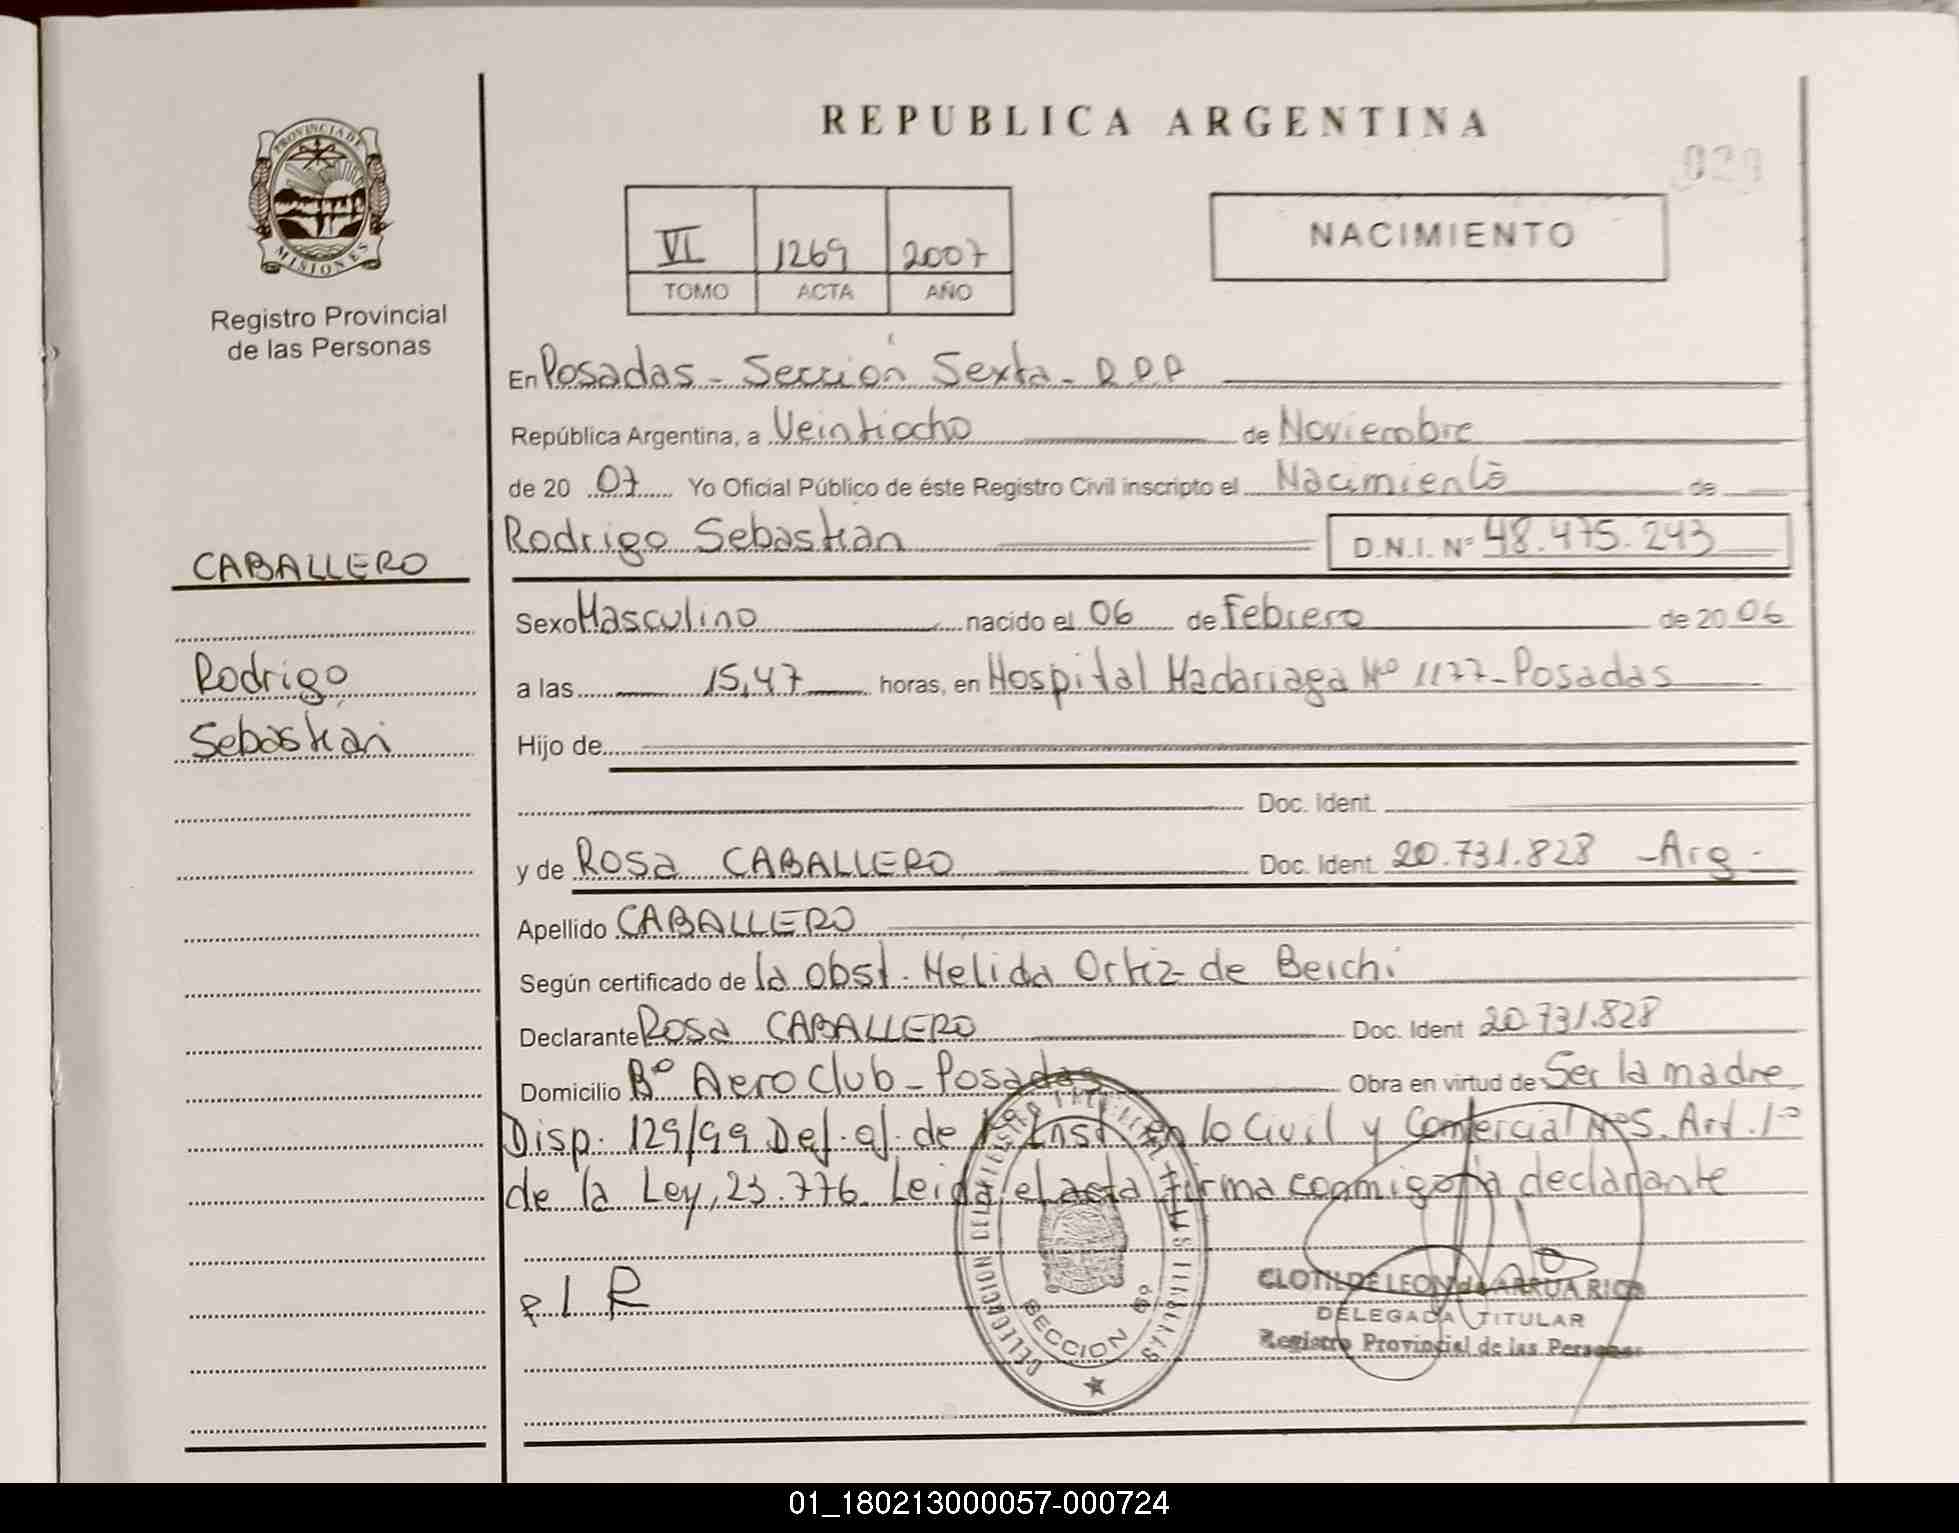 REPUBLICA ARGENTINA
029
PROVINCIA DE
MISIONES
Registro Provincial
de las Personas
VI 1269 2007
TOMO ACTA AÑO
NACIMIENTO
En Posadas - Sección Sexta - R.P.P
República Argentina, a Veintiocho de Noviembre
de 20 07 Yo Oficial Público de éste Registro Civil inscripto el Nacimiento de
Rodrigo Sebastian D.N.I. Nº 48.475.243
CABALLERO
Rodrigo
Sebastian
Sexo Masculino nacido el 06 de Febrero de 20 06
a las 15,47 horas, en Hospital Madariaga Nº 1177 - Posadas
Hijo de
Doc. Ident.
y de Rosa CABALLERO Doc. Ident. 20.731.828 - Arg.
Apellido CABALLERO
Según certificado de la obst. Nelida Ortiz de Beichi
Declarante Rosa CABALLERO Doc. Ident 20.731.828
Domicilio Bº Aero Club - Posadas Obra en virtud de Ser la madre
Disp. 129/99 Def. of. de 1º Inst en lo Civil y Comercial Nº5. Art. 1º
de la Ley, 23.776. Leida el acta firma conmigo la declarante
P I R
SECCION 6º
CLOTILDE LEON de ARRUA RICO
DELEGADA TITULAR
Registro Provincial de las Personas
01_180213000057-000724